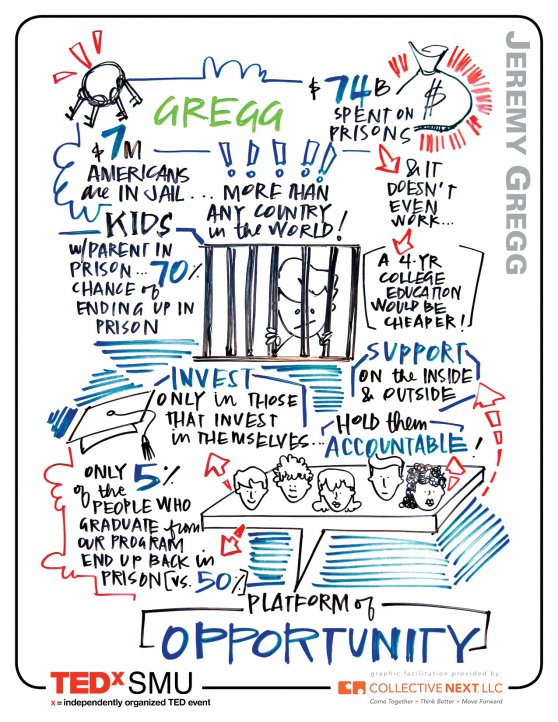 JEREMY GREGG
GREGG
$ 74B
SPENT ON
PRISONS
$
& IT
DOESN'T
EVEN
WORK...
A 4-YR
COLLEGE
EDUCATION
WOULD BE
CHEAPER!
& 7M
AMERICANS
are IN JAIL...
!!!!!
MORE THAN
ANY COUNTRY
in the WORLD!
KIDS
W/PARENT IN
PRISON... 70%
CHANCE of
ENDING UP IN
PRISON
SUPPORT
ON the INSIDE
& OUTSIDE
INVEST
ONLY IN THOSE
THAT INVEST
IN THEMSELVES...
HOLD them
ACCOUNTABLE!
ONLY 5%
of the
PEOPLE WHO
GRADUATE from
OUR PROGRAM
END UP BACK in
PRISON [VS. 50%]
PLATFORM of
OPPORTUNITY
TEDxSMU
x = independently organized TED event
graphic facilitation provided by:
COLLECTIVE NEXT, LLC
Come Together + Think Better + Move Forward